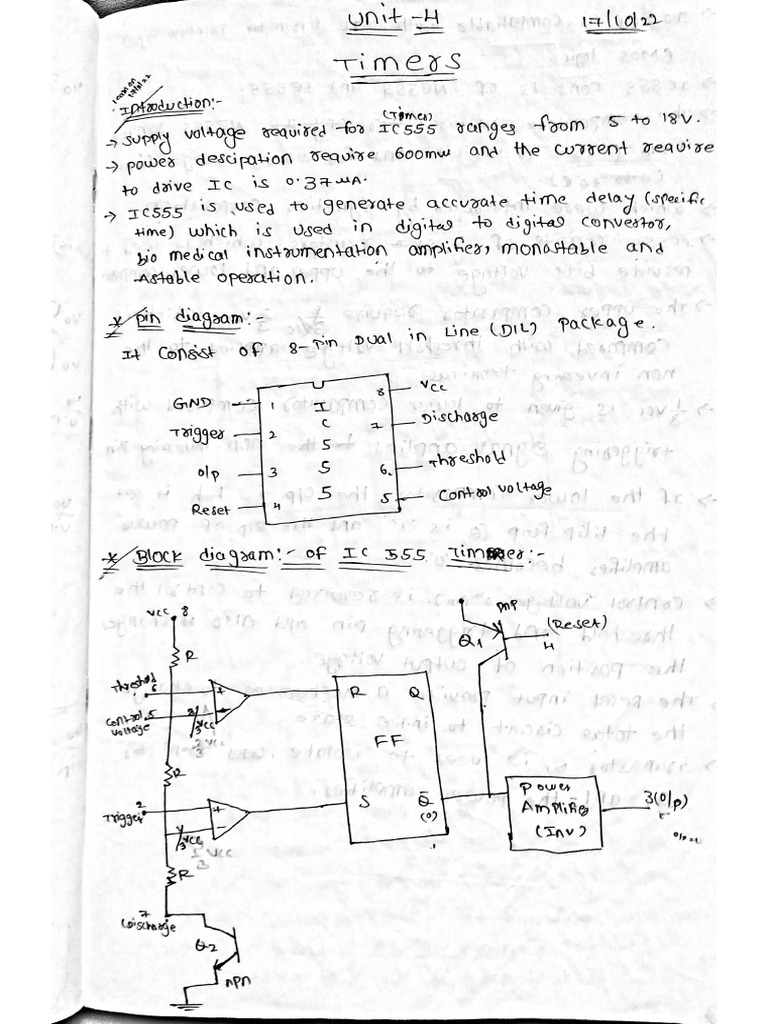 Unit-4 17/10/22
Timers
Introduction:-
(Timer)
→ supply voltage required for IC555 ranges from 5 to 18V.
→ power descipation require 600mw and the current require
to drive IC is 0.37 uA.
→ IC555 is used to generate accurate time delay (specific
time) which is used in digital to digital convertor,
bio medical instrumentation amplifier, monastable and
Astable operation.
* pin diagram:-
It consist of 8-pin Dual in Line (DIL) package.
GND 1 I 8 Vcc
Trigger 2 C 7 Discharge
O/p 3 5 6. Threshold
Reset 4 5 5 control voltage
5
* Block diagram:- of IC 555 Timer:-
Vcc 8
R
pnp
Q1
(Reset)
4
Threshold 6
+
control 5
voltage
-
R Q
FF
S Q̅
(0)
R
2
Trigger
+
-
1/3 Vcc
Power
Amplifier
(Inv)
3(O/p)
R
7
Discharge
Q2
npn